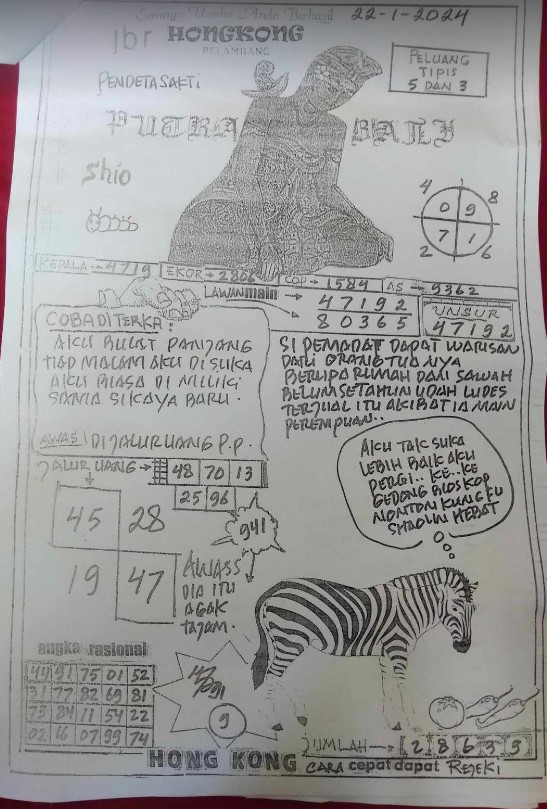 Semoga Usaha Anda Berhasil
22-1-2024
jbr HONGKONG
PELAMBANG
PENDETA SAKTI
PELUANG
TIPIS
5 DAN 3
PUTRA BALI
Shio
4
8
0 9
7 1
2
6
KEPALA → 4719
EKOR → 2806
COP → 1584
AS → 9362
LAWAN main →
47192
80365
UNSUR
47192
COBA DITERKA:
AKU BULAT PANJANG
TIAP MALAM AKU DI SUKA
AKU BIASA DI MILIKI
SAMA SI KAYA BARU.
AWAS! DI JALUR UANG P.P.
SI PEMADAT DAPAT WARISAN
DARI ORANG TUA NYA
BERUPA RUMAH DAN SAWAH
BELUM SETAHUN UDAH LUDES
TERJUAL ITU AKIBAT IA MAIN
PEREMPUAN..
JALUR UANG →
48 70 13
25 96
45 28
19 47
941
AWASS
DIA ITU
AGAK
TAJAM.
AKU TAK SUKA
LEBIH BAIK AKU
PERGI.. KE..KE
GEDONG BIOSKOP
NONTON KUNG FU
SHAOLIN HEBAT
angka rasional
49 91 75 01 52
31 77 82 69 81
73 84 11 54 22
02 16 07 99 74
9
JUMLAH → 2 8 6 3 5
HONG KONG
CARA cepat dapat REJEKI